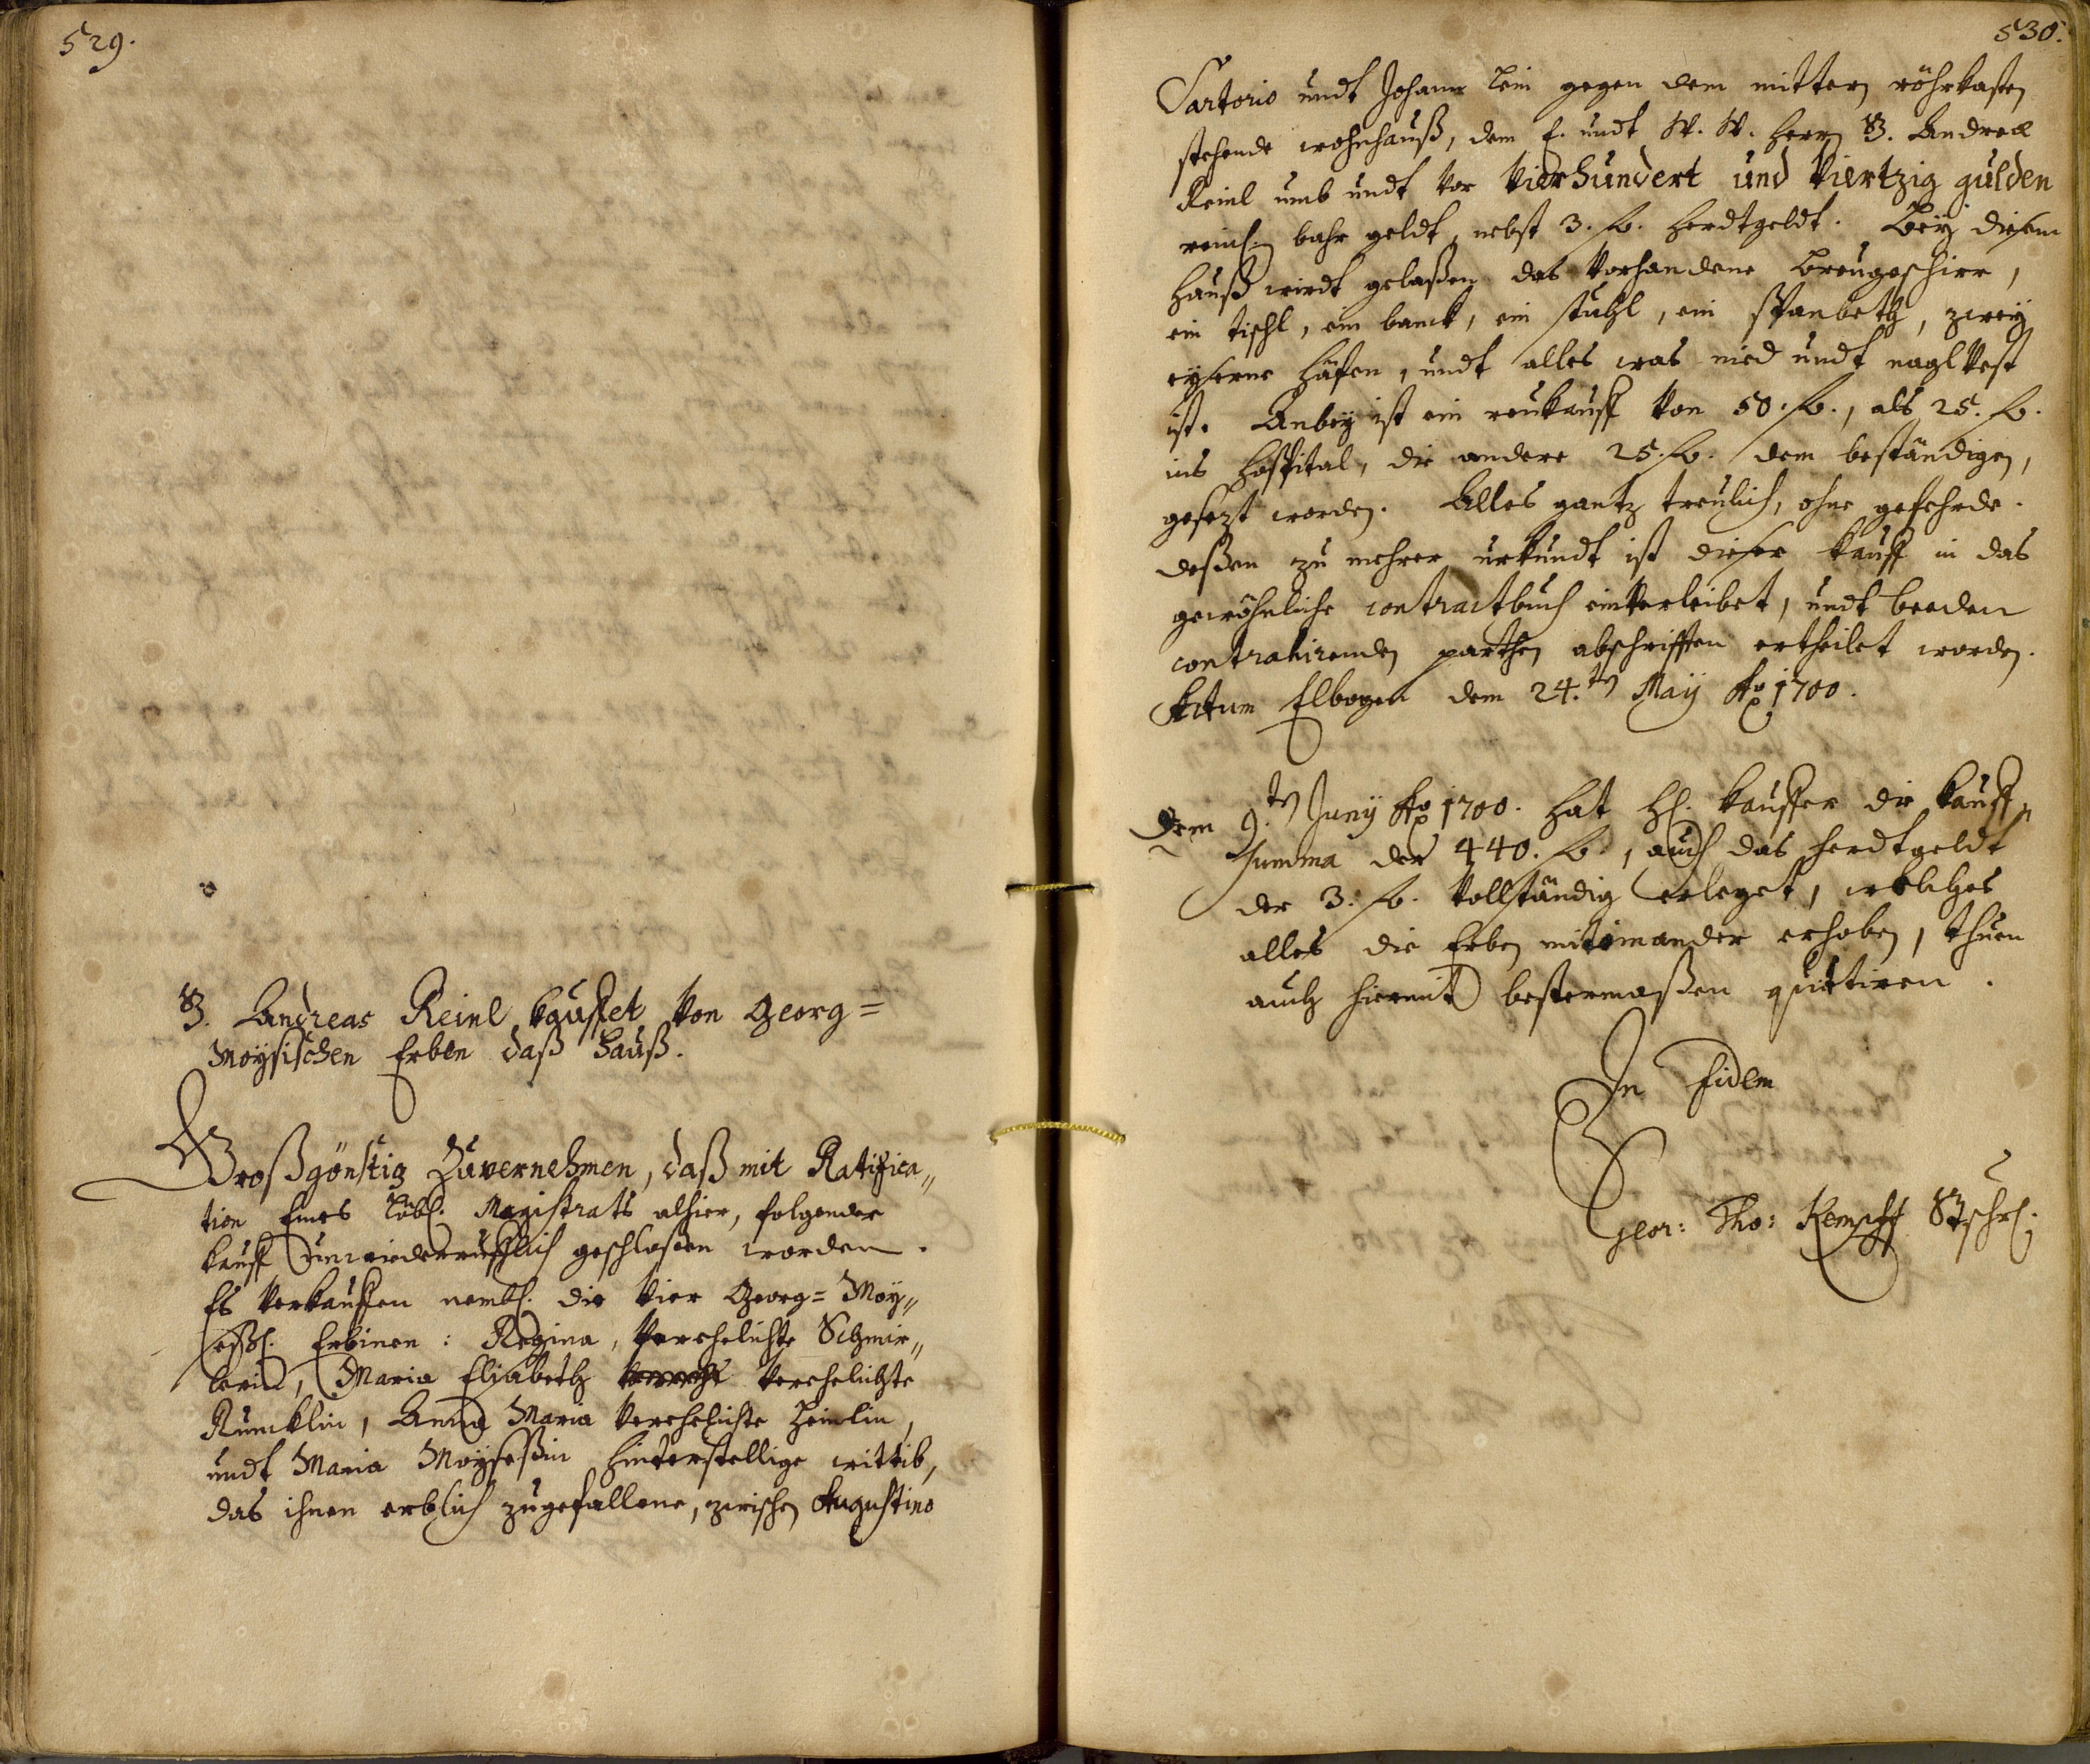 529.
H. Andreas Reinl kauffet von Georg=
Moysischen Erben daß Hauß.
Großgönstig Zuvernehmen, daß mit Ratifica„
tion Eines löbl. Magistrats alhier, folgender
kauff unwiederrufflich geschlossen worden.
Es verkauffen nembl. die vier Georg= Moy„
Erbinen: Regina, verehelichte Schmie„
lerin, Maria Elisabeth verehelichte
Rumcklin, Anna Maria verehelichte Heinlin,
undt Maria Moysessin hinterstellige wittib,
das ihnen erblich zugefallene, zwischen Augustino
530.
Sartorio undt Johann lein gegen dem mittern röhrkasten
stehende wohnhauß, dem E. undt W. W. herrn H. Andreæ
Reinl umb undt vor vierhundert und viertzig gulden
reinl. bahr geldt, nebst 3. fl. herdtgeldt. Bey diesem
hauß wirdt gelaßen das vorhandene breugeschirr,
ein tischl, ein banck, ein stuhl, ein spanbeth, zwey
eyserne häfen, undt alles was nied undt naglvest
ist. Anbey ist ein reukauff von 50. fl., als 25. fl.
ins hospital, die andere 25. fl. dem beständigen,
gesezt worden. Alles gantz treulich, ohne gefehrde.
deßen zu mehrer urkundt ist dieser kauff in das
gewöhnliche contractbuch einverleibet, undt beeden
contrahirenden parthen abschrifften ertheilet worden.
Actum Elbogen dem 24.ten May Ao 1700.
Dem 9.ten Juny Ao 1700. hat hl. kauffer die kauff„
summa der 440. fl., auch das herdtgeldt
der 3. fl. vollständig erleget, welches
alles die Erben miteinander erhoben, thuen
auch hiermit bestermaßen quittiren.
In fidem
Geor: Tho: Kempff Stschr.